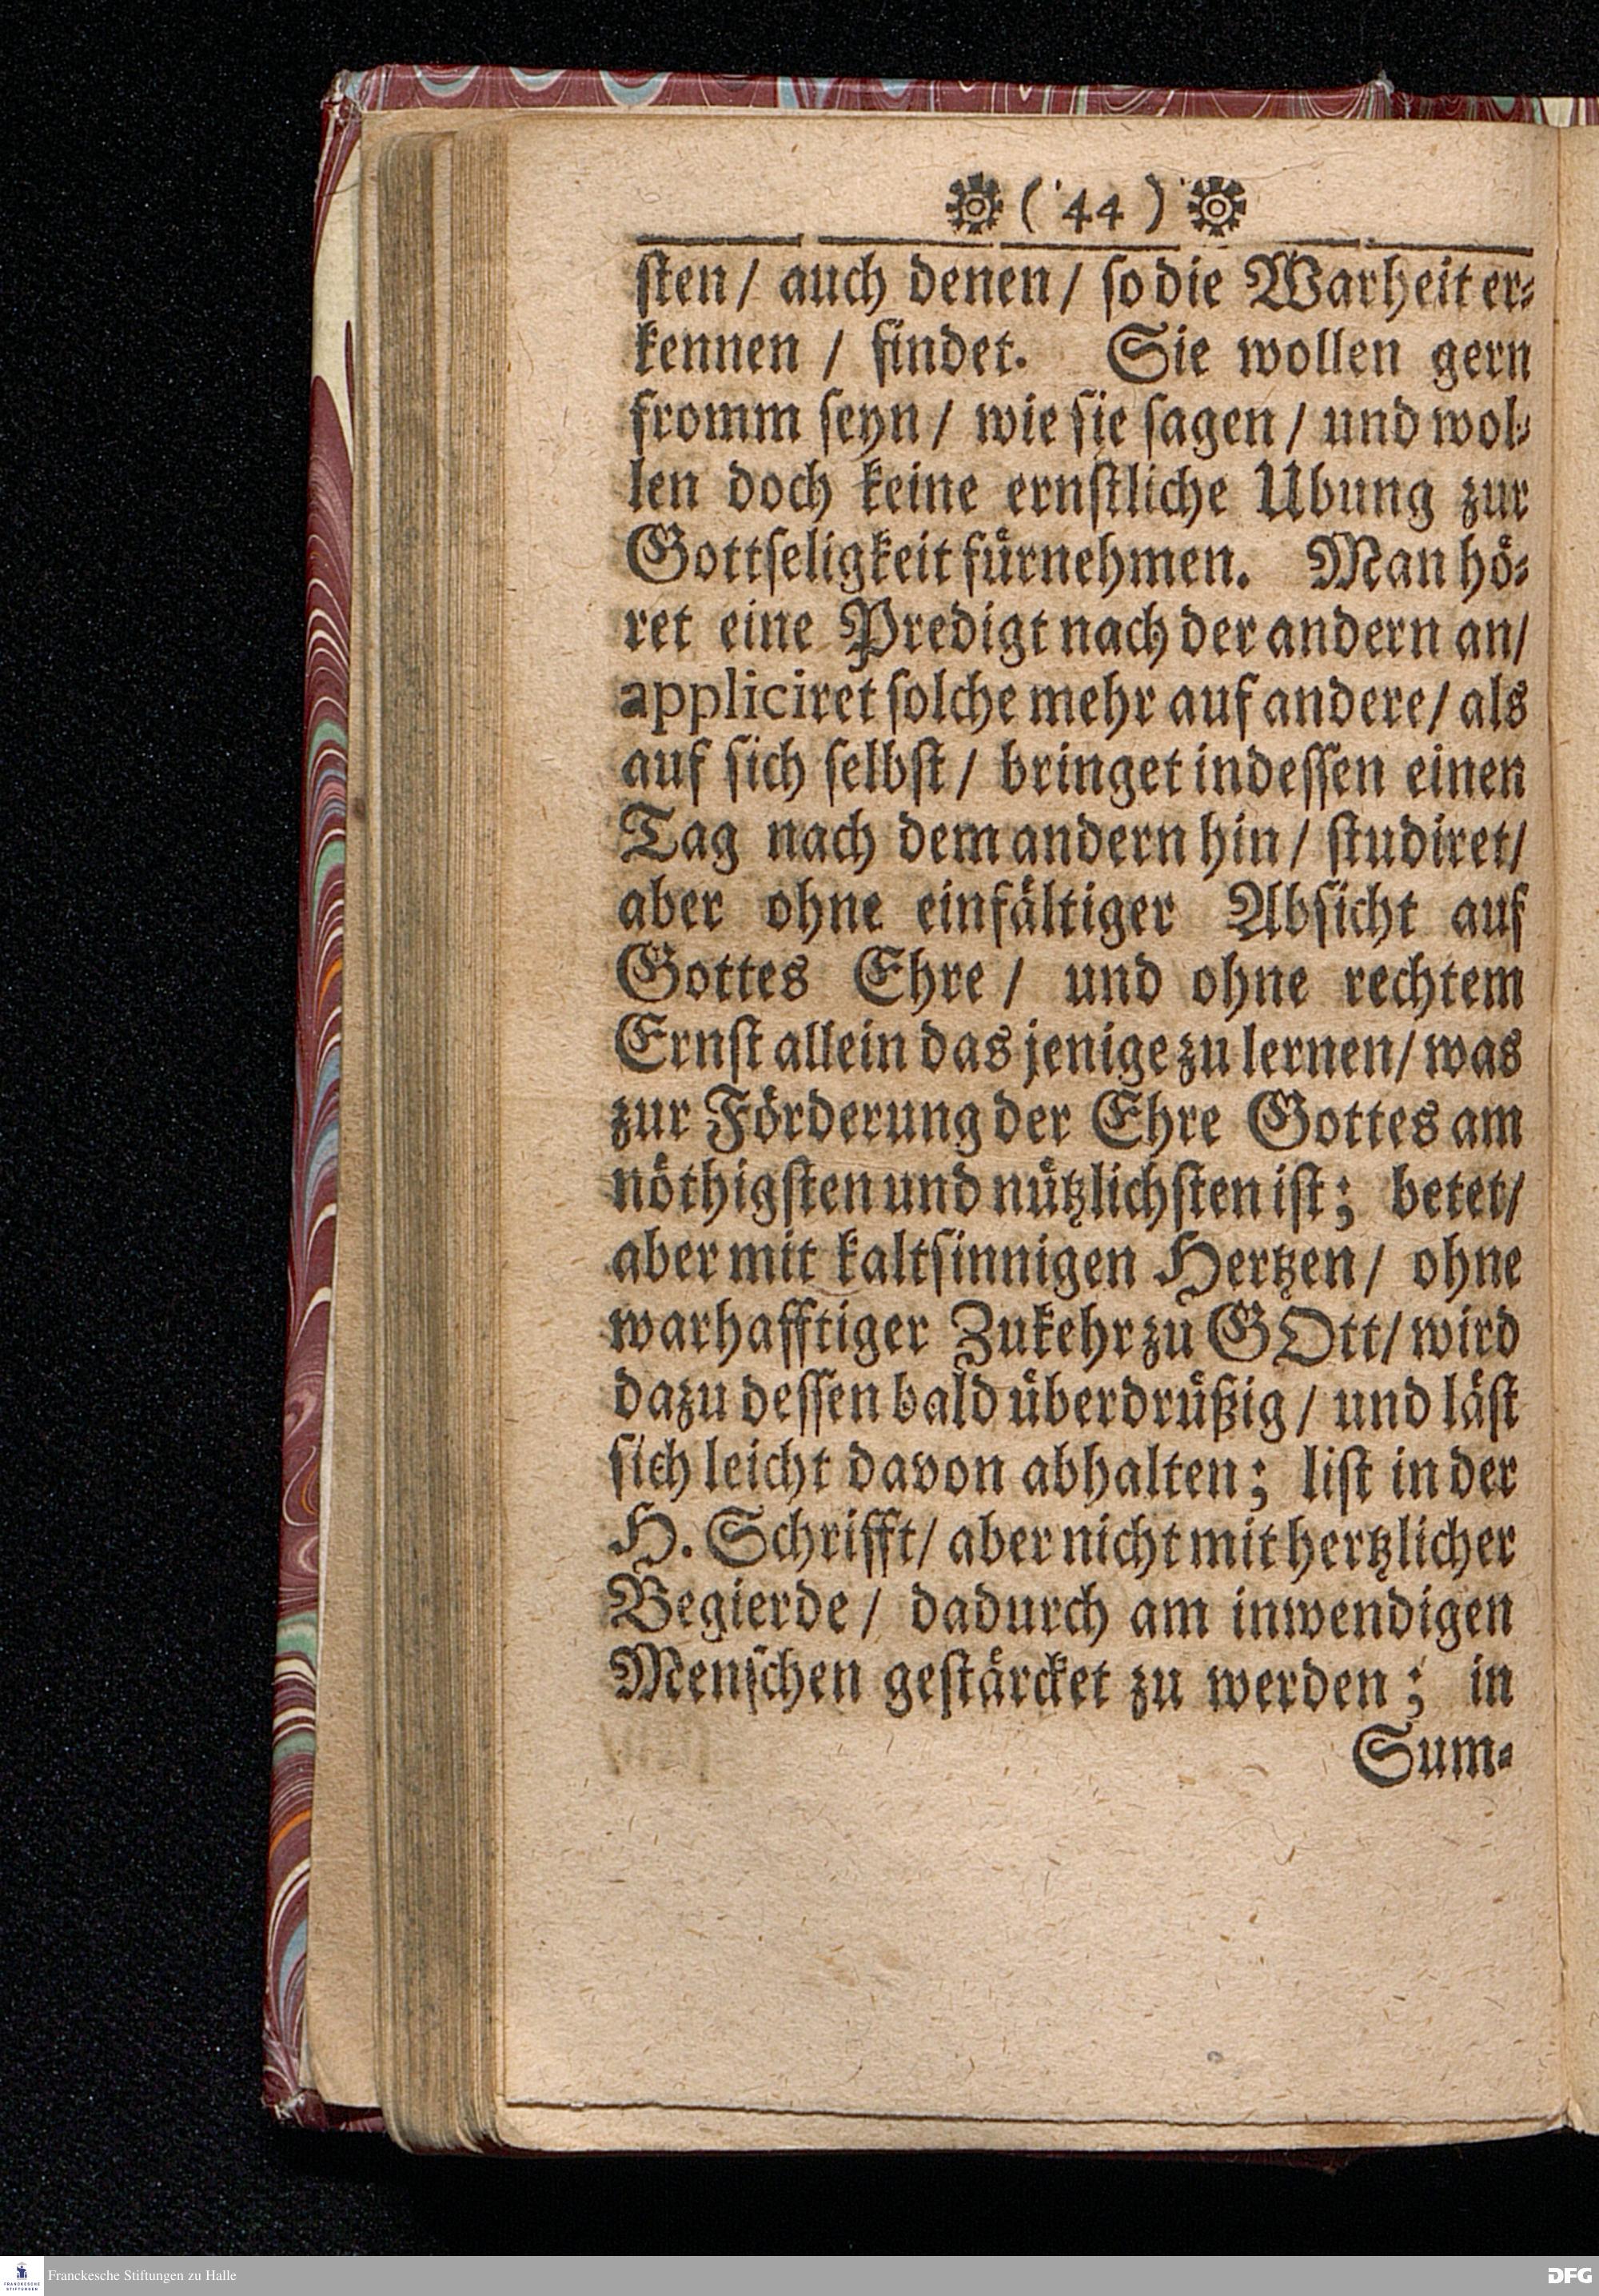 ( 44 )
sten/ auch denen/ so die Warheit er-
kennen / findet. Sie wollen gern
fromm seyn/ wie sie sagen/ und wol-
len doch keine ernstliche Ubung zur
Gottseligkeit fürnehmen. Man hö-
ret eine Predigt nach der andern an/
appliciret solche mehr auf andere/ als
auf sich selbst/ bringet indessen einen
Tag nach dem andern hin/ studiret/
aber ohne einfältiger Absicht auf
Gottes Ehre/ und ohne rechtem
Ernst allein das jenige zu lernen/ was
zur Förderung der Ehre Gottes am
nöthigsten und nützlichsten ist; betet/
aber mit kaltsinnigen Hertzen/ ohne
warhafftiger Zukehr zu GOtt/ wird
dazu dessen bald überdrüßig/ und läst
sich leicht davon abhalten; list in der
H. Schrifft/ aber nicht mit hertzlicher
Begierde/ dadurch am inwendigen
Menschen gestärcket zu werden; in
Sum-
FRANCKESCHE
STIFTUNGEN
Franckesche Stiftungen zu Halle
DFG